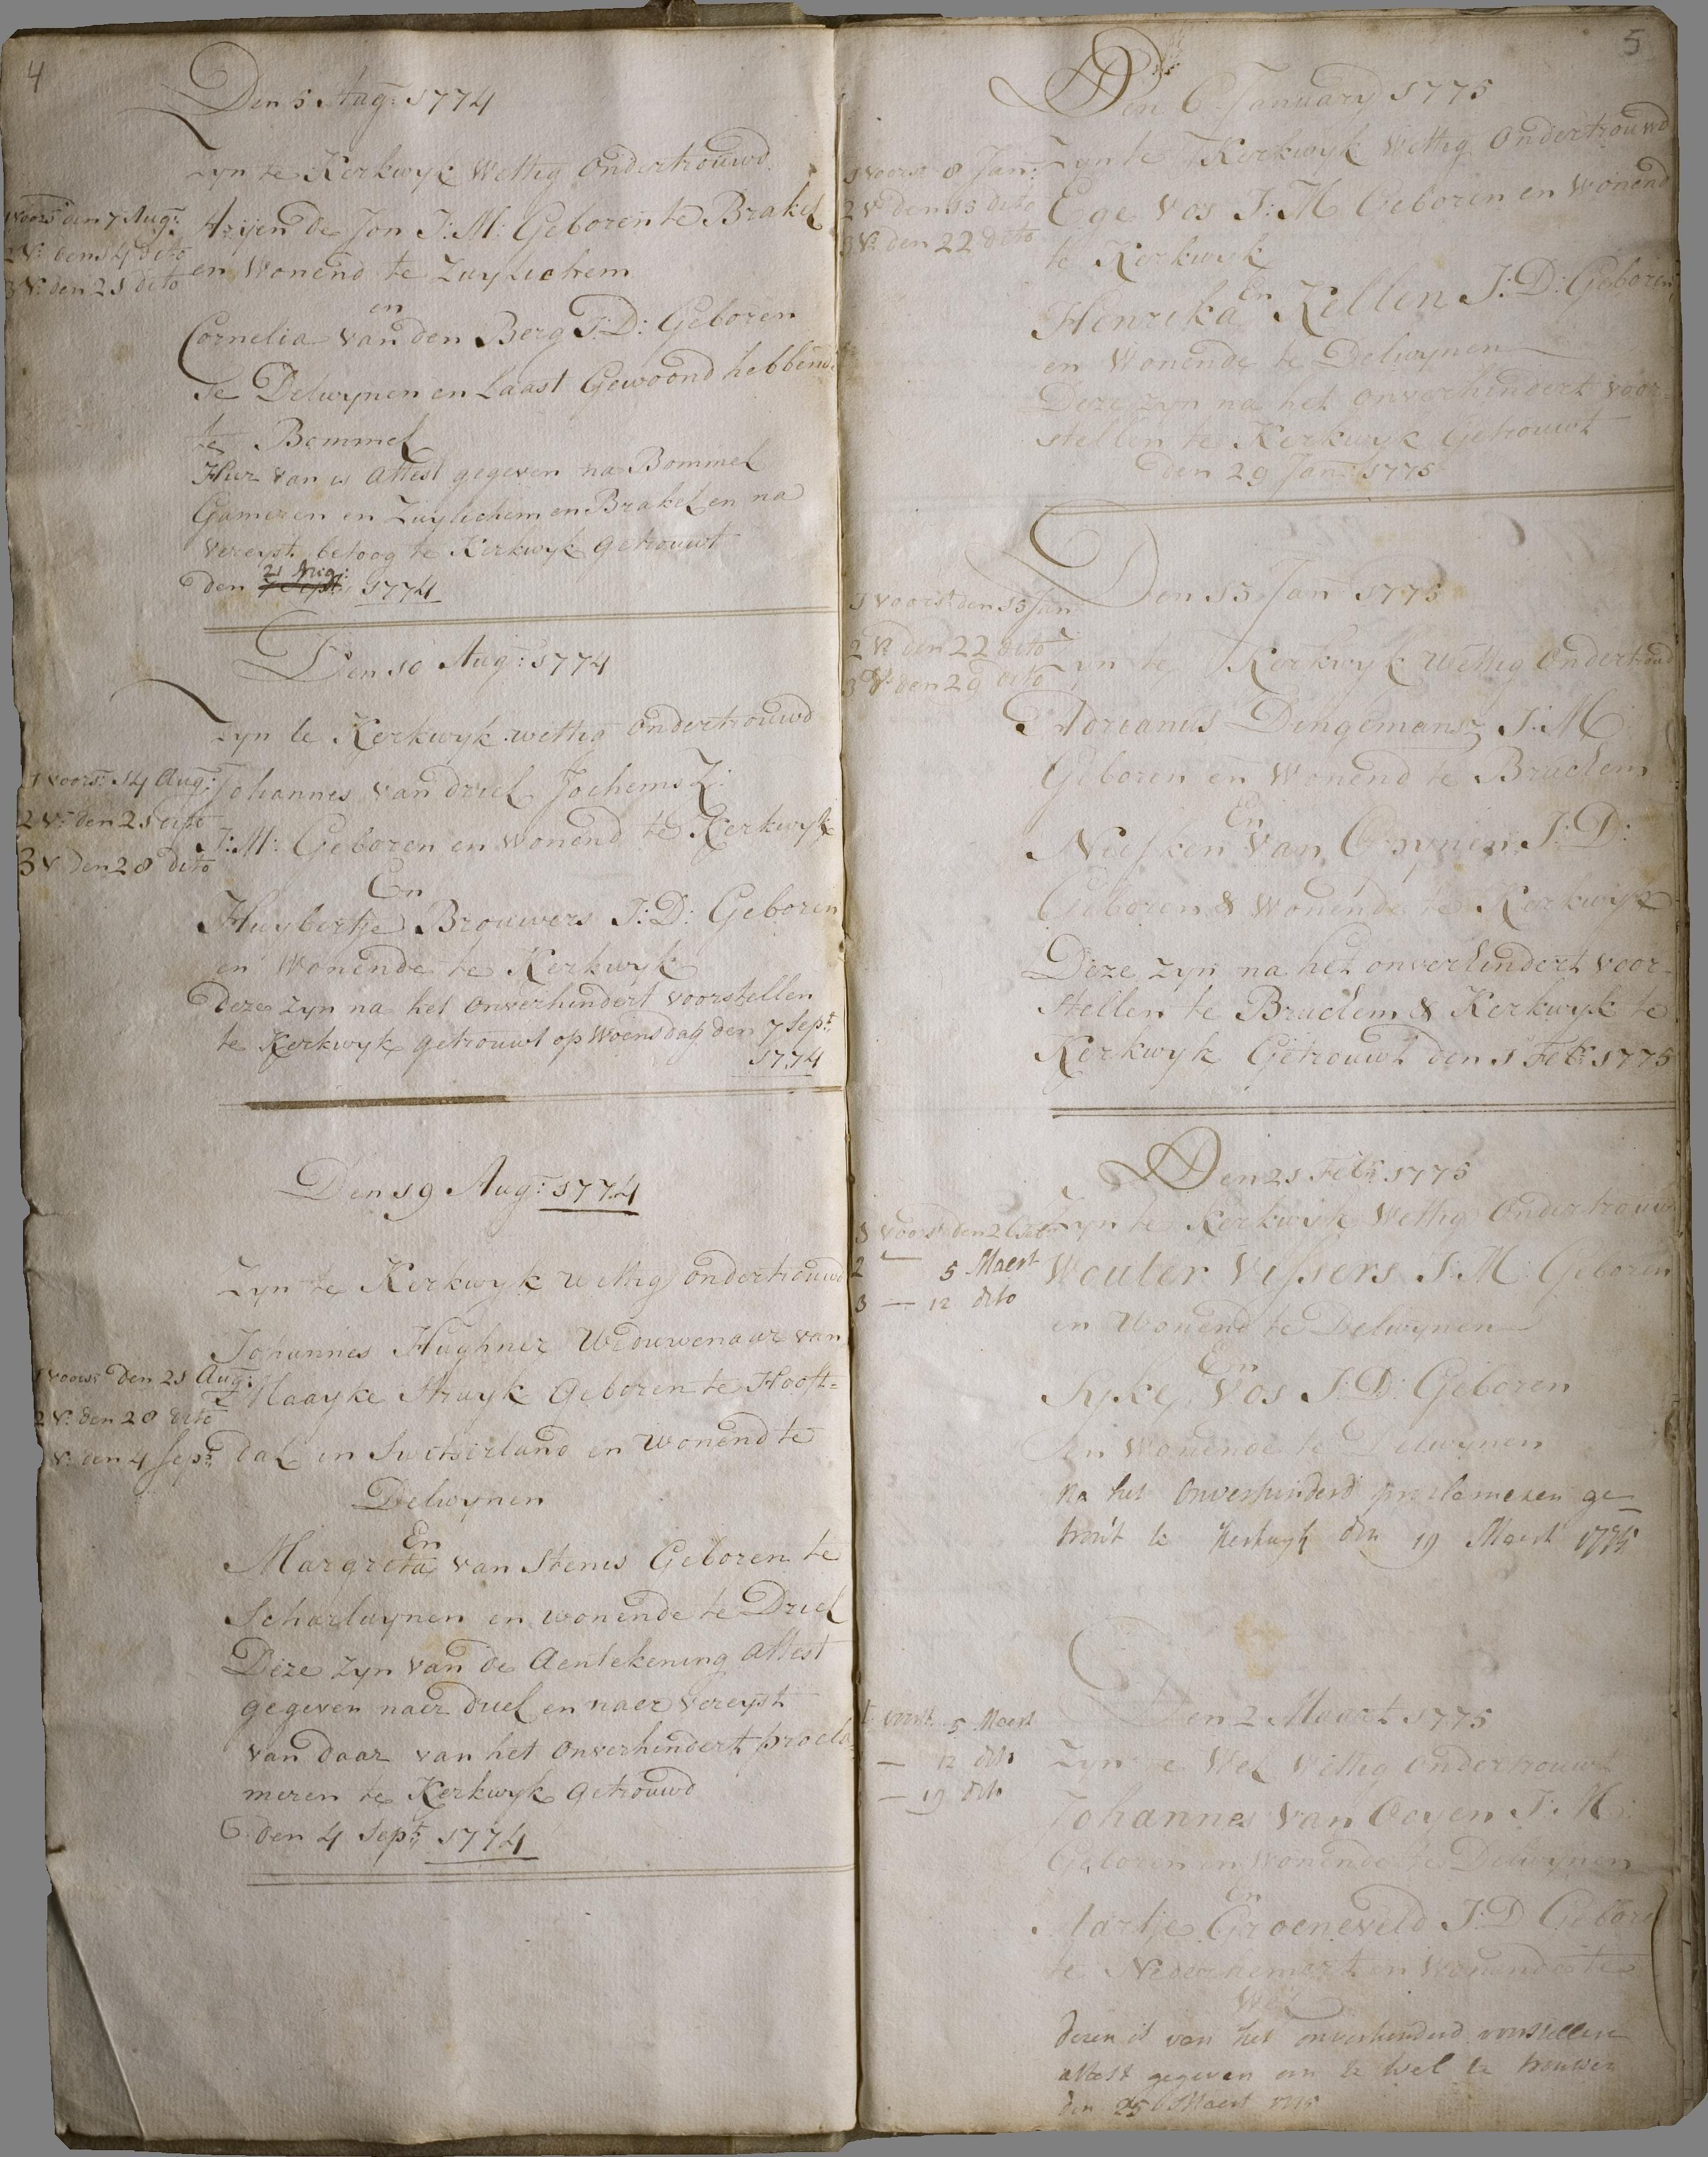 4
Den 5 Aug: 1774
Zyn te Kerkwyk Wettig Ondertrouwd
1 voorst den 7 Aug:
2 V: den 14 dito
3 V: den 21 dito
Arijen de Jon J: M: Geboren te Brakel
en Wonend te Zuylichem
en
Cornelia van den Berg J: D: Geboren
te Delwynen en Laast Gewoond hebbend
te Bommel
Hier van is Attest gegeven na Bommel
Gameren en Zuylichem en Brakel en na
Vereyst betoog te Kerkwyk getrouwt
den 21 Aug: 1774
Den 10 Aug: 1774
Zyn te Kerkwyk wettig Ondertrouwd
1 voorst: 14 Aug:
2 V: den 21 dito
3 V den 28 dito
Johannes van driel Jochems Z:
J: M: Geboren en wonend te Kerkwyk
En
Huybertje Brouwers J: D: Geboren
en Wonende te Kerkwyk
Deze zyn na het Onverhindert voorstellen
te Kerkwyk getrouwt op Woensdag den 7 Sept:
1774
Den 19 Aug: 1774
Zyn te Kerkwyk wettig ondertrouwd
1 voorst den 21 Aug:
2 V: den 28 dito
V: den 4 Sept:
Johannes Hughner Wedouwenaar van
Maayke Struyk Geboren te Hooft=
dal in Switserland en Wonend te
Delwynen
En
Margreta van Stenis Geboren te
Scharluynen en wonende te Driel
Deze Zyn van de Aentekening Attest
gegeven naer driel en naer Vereyst
van daar van het Onverhindert procla
meren te Kerkwyk Getrouwd
den 4 Sept: 1774
5
Den 6 January 1775
1 voorst 8 Jan:
2 V den 15 dito
3 V: den 22 dito
Zyn te Kerkwyk Wettig Ondertrouwd
Ege Vos J: M Geboren en Wonend
te Kerkwyk
En
Henrika Zellen J: D: Geboren
en Wonende te Delwynen
Deze zyn na het onverhindert voor=
stellen te Kerkwyk Getrouwt
den 29 Jan: 1775
Den 13 Jan 1775
1 voorst den 15 Jan
2 V: den 22 dito
3 V: den 29 dito
Zyn te Kerkwyk Wettig Ondertroud
Adrianus Dingemansz J: M
Geboren en Wonend te Bruchem
En
Neesken Van J: D:
Geboren & Wonende te Kerkwyk
Deze zyn na het onverhindert voor-
stellen te Bruchem & Kerkwyk te
Kerkwyk Getrouwt den 1 Feb: 1775
Den 21 Feb: 1775
1 voorst den 26 dito
2 — 5 Maert
3 — 12 dito
Zyn te Kerkwyk Wettig Ondertrouwt
Wouter Vissers J: M: Geboren
en Wonend te Delwynen
En
Sijke Vos J: D: Geboren
en Wonende te Delwynen
na het Onverhinderd proclameren ge-
trout te Kerkwyk den 19 Maert 1775
Den 2 Maart 1775
1 voorst. 5 Maert
— 12 dito
— 19 dito
Zyn te Wel Wettig ondertrouwt
Johannes Van Ooyen J: M:
Geboren en Wonende te Delwynen
En
Martje Groeneveld J: D Gebore
te Nederhemert en Wonende te
Wel
Dezen is van het onverhinderd voorstellen
attest gegeven om te Wel te trouwen
den 25 Maert 1775